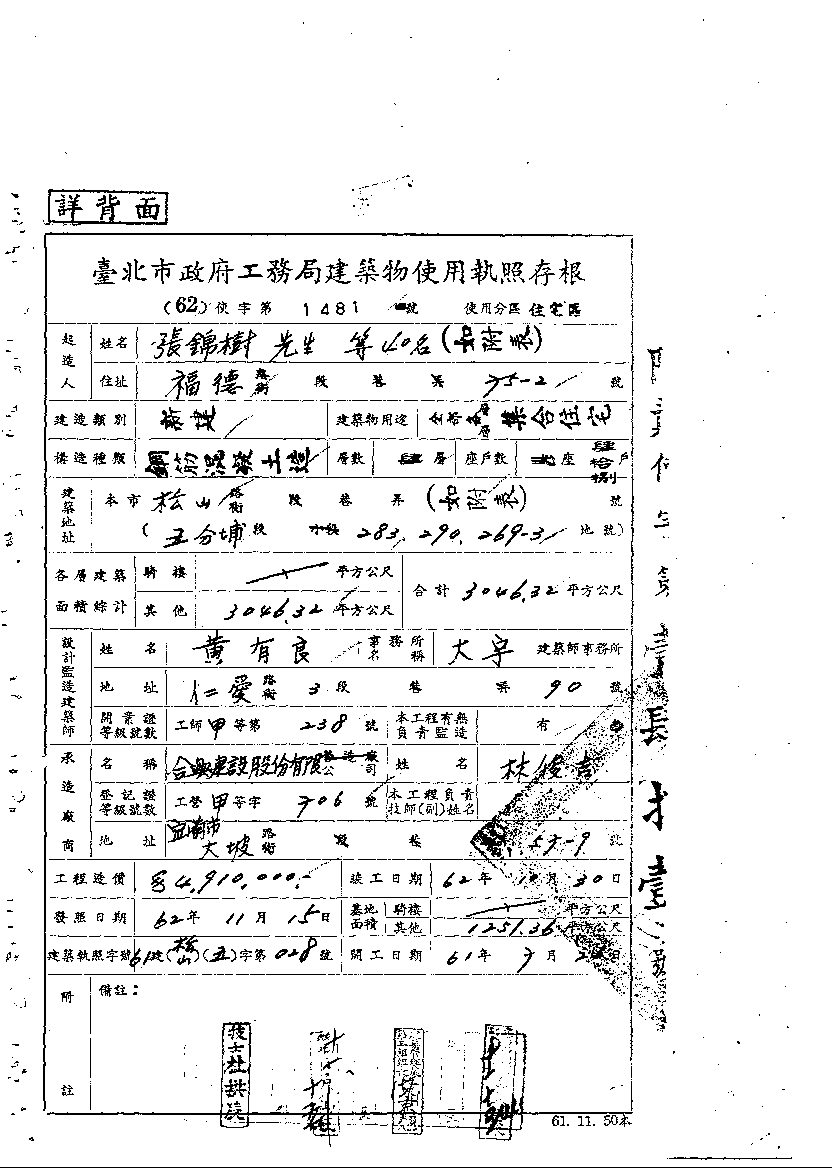 詳背面
臺北市政府工務局建築物使用執照存根
(62)使字第 1481 號 使用分區 住宅區
起造人 姓名 張錦樹 先生 等40名(如附表)
住址 福德 路街 段 巷 弄 75-2 號
建造類別 新建 建築物用途 集合住宅
構造種類 鋼筋混凝土造 層數 肆層 座戶數 座 肆拾捌戶
建築地址 本市 松山 路街 段 巷 弄 (如附表) 號
(五分埔段 小段 283, 290, 269-3 地號)
各層建築面積綜計 騎樓 平方公尺 合計 3046.32 平方公尺
其他 3046.32 平方公尺
設計監造建築師 姓名 黃有良 事務所名稱 大宇 建築師事務所
地址 仁愛 路街 3段 巷 弄 90 號
開業證等級號數 工師甲等第 238 號 本工程有無負責監造 有
承造廠商 名稱 合興建設股份有限公司 姓名 林俊吉
登記證等級號數 工營甲等字 706 號 本工程負責技師(副)姓名
地址 大坡 路街 段 巷 57-9 號
工程造價 4,910,000.- 竣工日期 62年 10月 30日
發照日期 62年 11月 15日 基地面積 騎樓 平方公尺
其他 1251.36 平方公尺
建築執照字號 61建(松山)(五)字第028號 開工日期 61年 7月 日
附註 備註:
61. 11. 50本